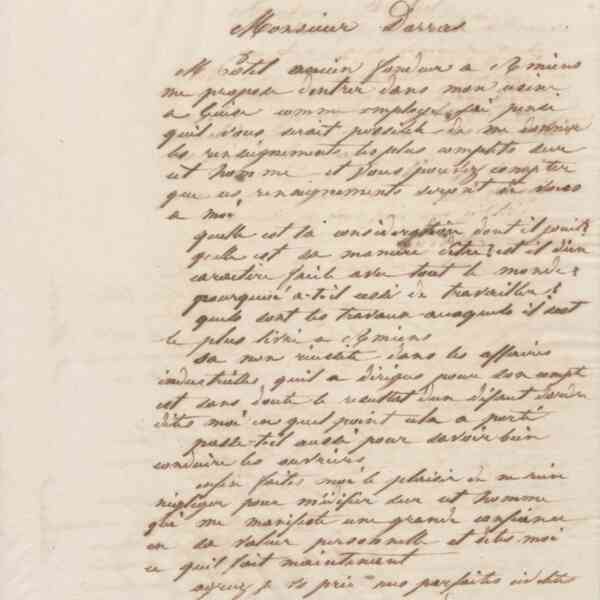 Monsieur Darras
M Petel ancien fondeur a Amiens
me propose d'entrer dans mon usine
a Guise comme employé, j'ai pensé
qu'il vous serait possible de me donner
les renseignements les plus complets sur
cet homme et vous pouvez compter
que ces renseignements seront de vous
a moi
quelle est la considération dont il jouit?
quelle est sa manière d'être? est il d'un
caractère facile avec tout le monde?
pourquoi a-t-il cessé de travailler?
quels sont les travaux auxquels il s'est
le plus livré a Amiens
sa non réussite dans les affaires
industrielles qu'il a dirigées pour son compte
est sans doute le résultat d'un défaut d'ordre
dites moi en quel point cela a porté
passe-t-il aussi pour savoir bien
conduire les ouvriers
enfin faites moi le plaisir de ne rien
négliger pour m'édifier sur cet homme
qui me manifeste une grande confiance
en sa valeur personnelle et dites moi
ce qu'il fait maintenant
agréez je vs prie mes parfaites civilités